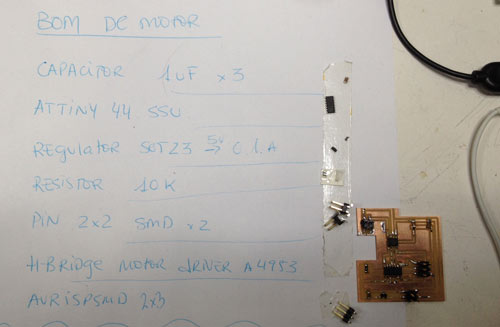 BOM DC MOTOR
CAPACITOR 1uF x3
ATTINY 44 SSU
REGULATOR SOT23 5V → 0.1A
RESISTOR 10K
PIN 2x2 SMD x2
H-BRIDGE MOTOR DRIVER A4953
AVRISPSMD 2x3